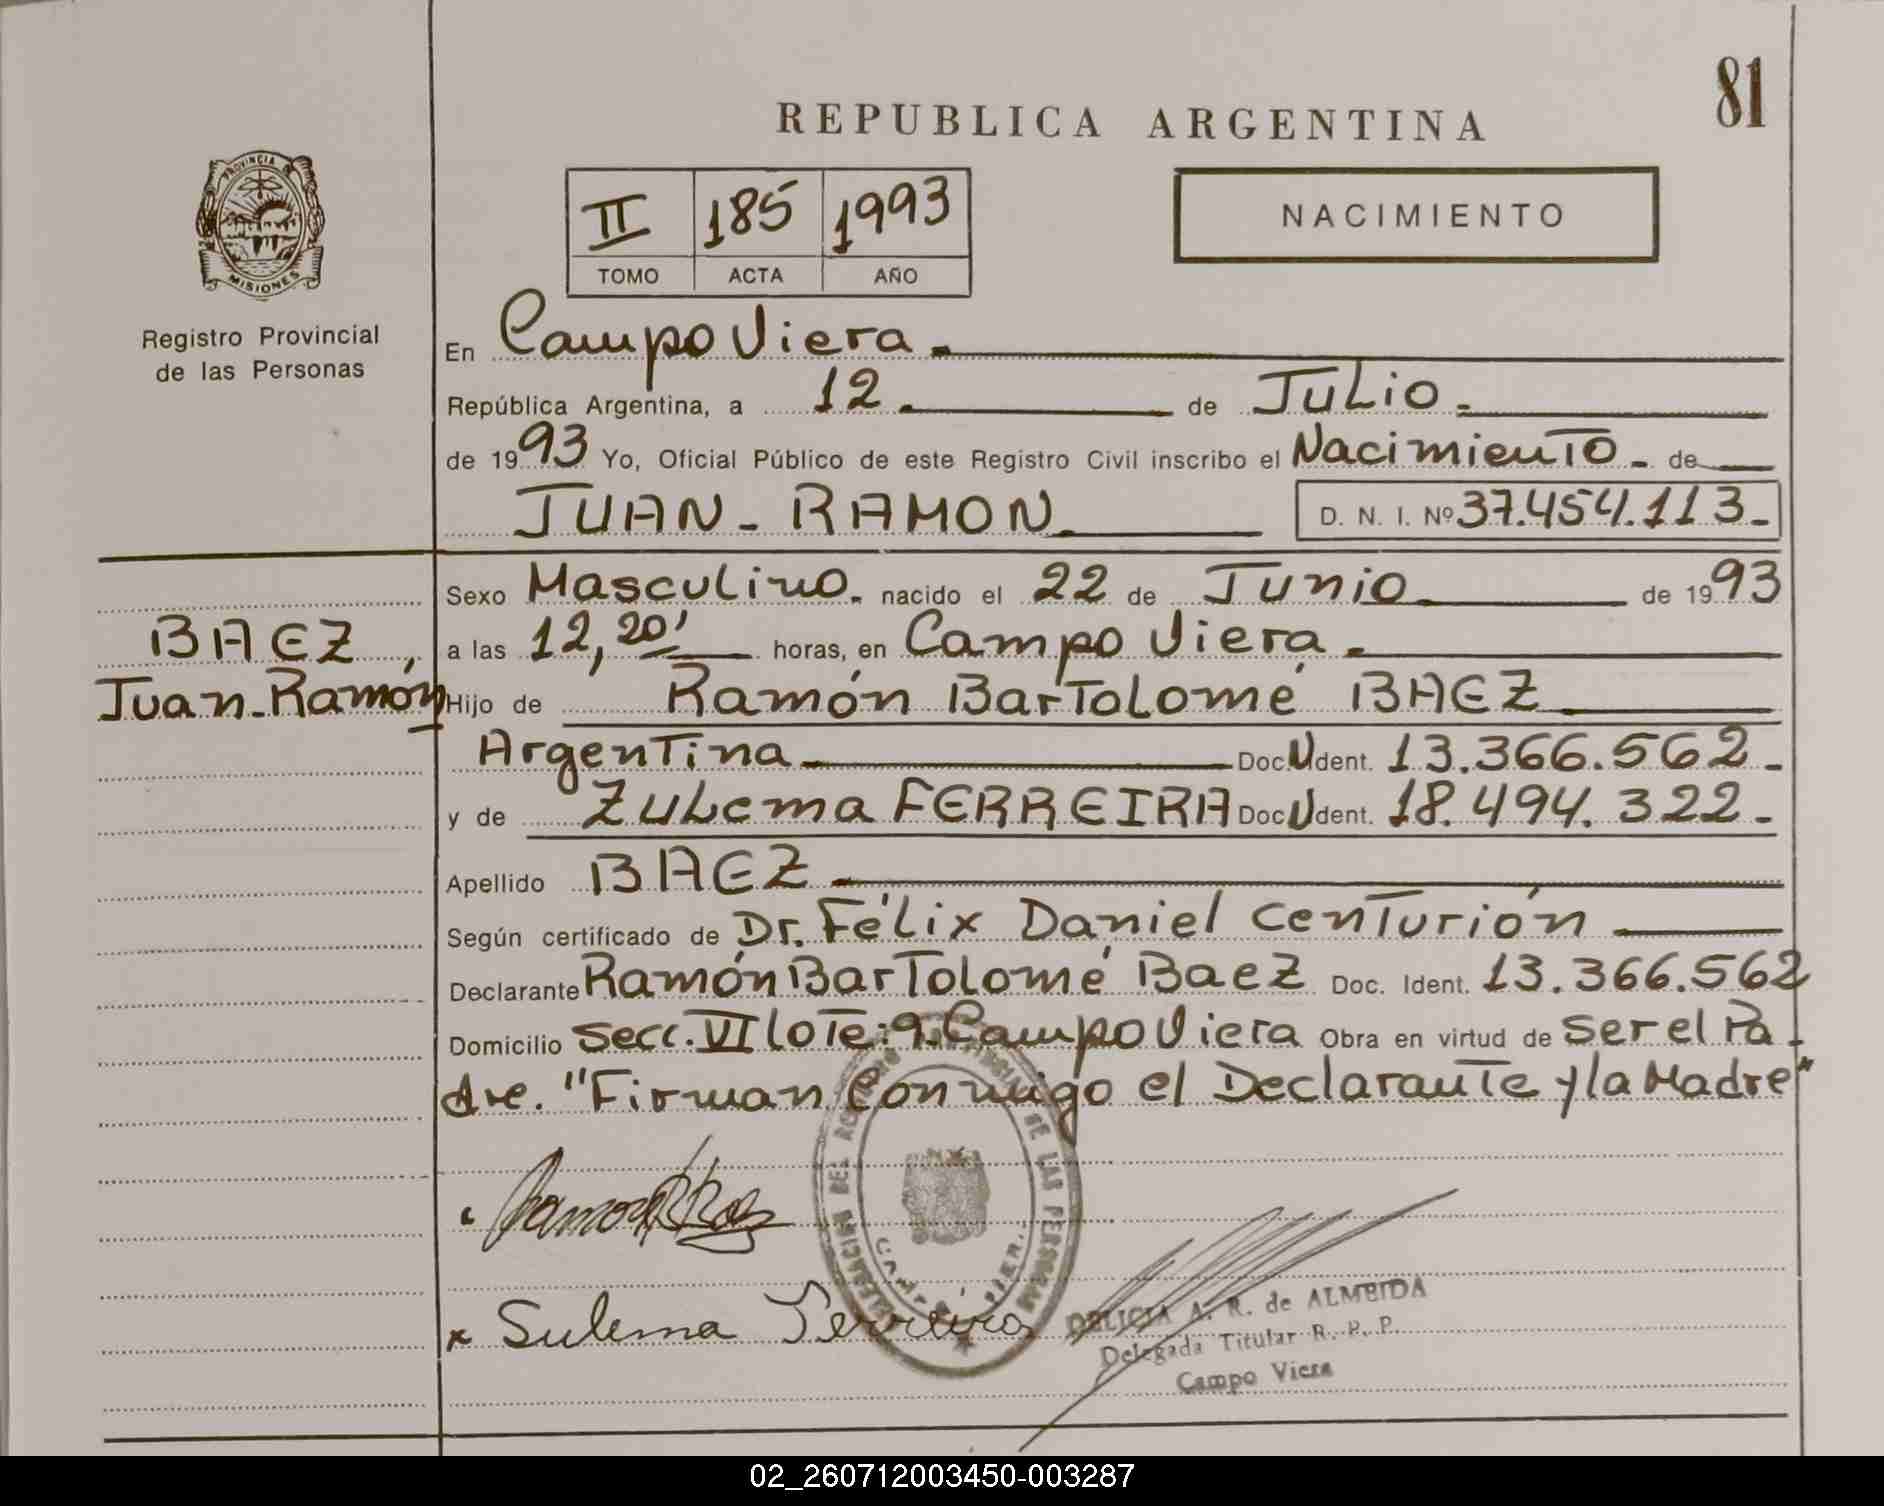 81
REPUBLICA ARGENTINA
PROVINCIA DE
MISIONES
Registro Provincial
de las Personas
II 185 1993
TOMO ACTA AÑO
NACIMIENTO
En Campo Viera.
República Argentina, a 12. de Julio.
de 1993 Yo, Oficial Público de este Registro Civil inscribo el Nacimiento. de
JUAN-RAMON D. N. I. Nº 37.454.113-
Sexo Masculino. nacido el 22 de Junio de 1993
BAEZ,
Juan-Ramón
a las 12,20' horas, en Campo Viera.
Hijo de Ramón Bartolomé BAEZ
Argentina Doc U dent. 13.366.562-
y de Zulema FERREIRA Doc U dent. 18.494.322-
Apellido BAEZ
Según certificado de Dr. Félix Daniel Centurión
Declarante Ramón Bartolomé Baez Doc. Ident. 13.366.562
Domicilio Secc. VI lote: 9. Campo Viera Obra en virtud de ser el Pa-
dre. "Firman Conmigo el Declarante y la Madre"
DELEGACION DEL REGISTRO PROVINCIAL DE LAS PERSONAS
CAMPO VIERA
x Sulema Ferreira
DELICIA A. R. de ALMEIDA
Delegada Titular R. P. P.
Campo Viera
02_260712003450-003287